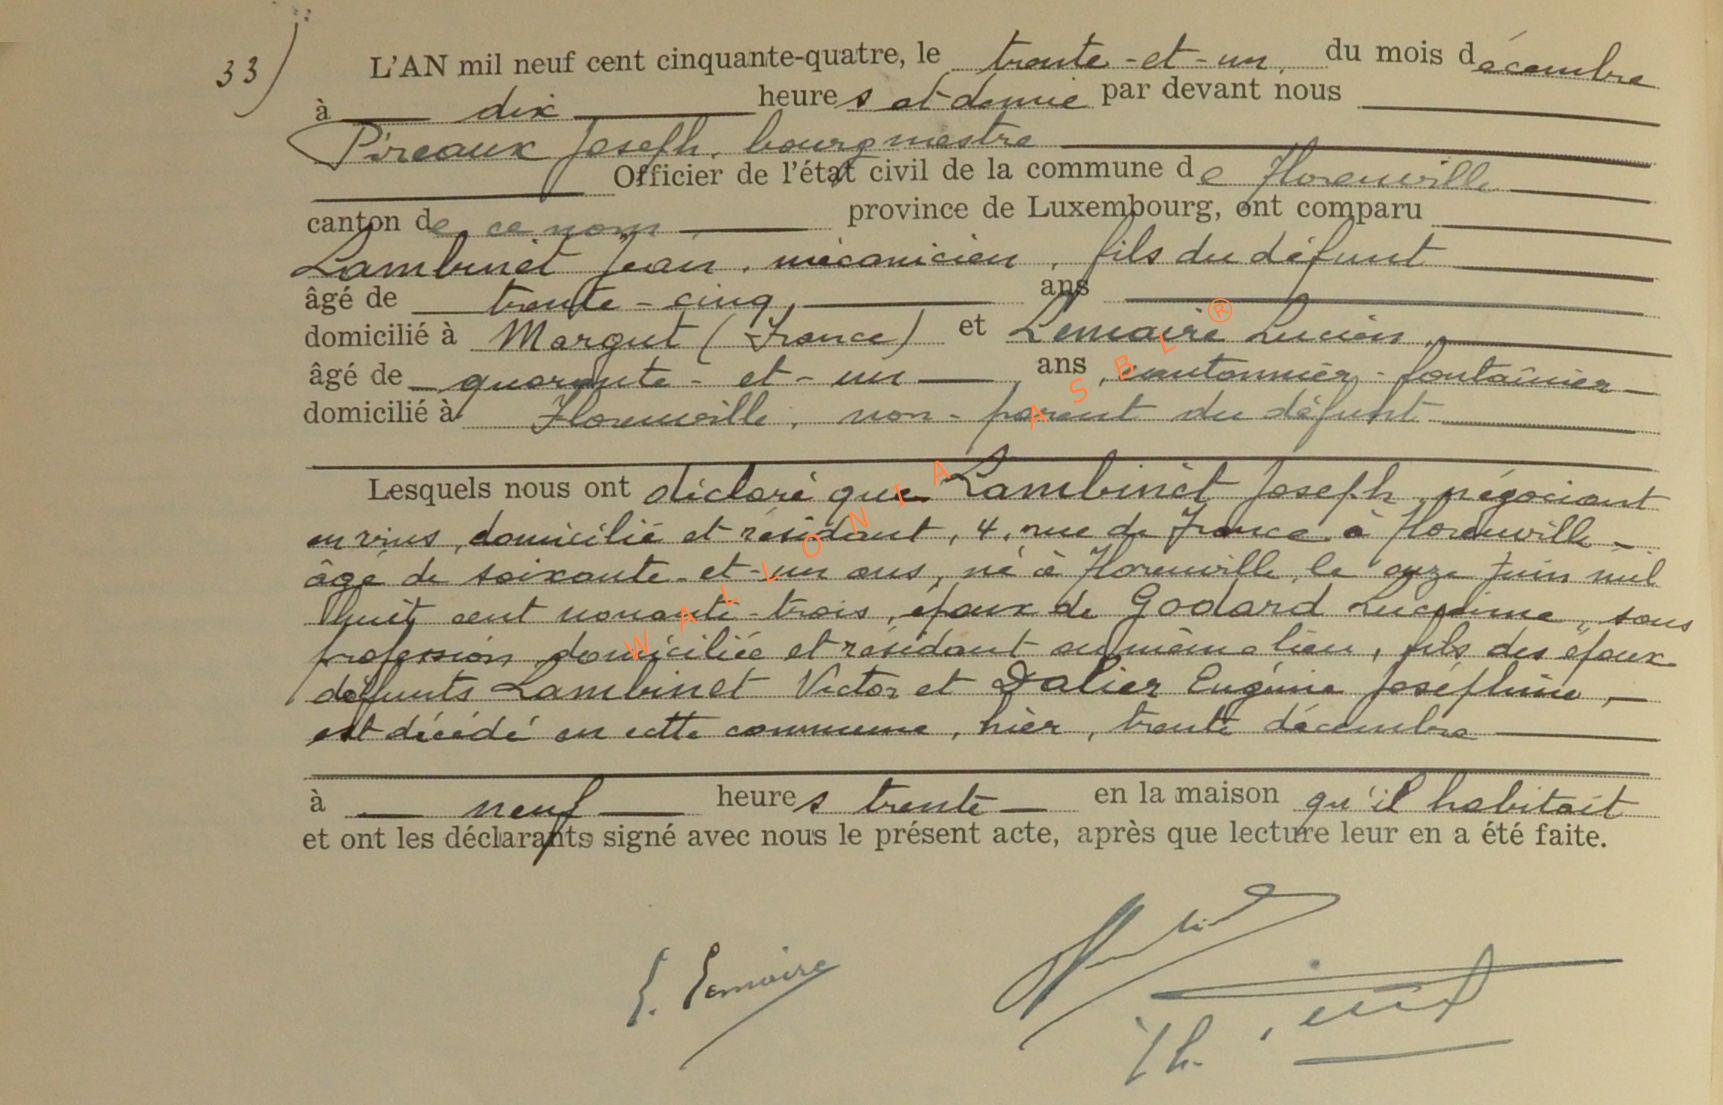 33)
L'AN mil neuf cent cinquante-quatre, le trente-et-un, du mois décembre
à dix heures et demie par devant nous
Pireaux Joseph, bourgmestre
Officier de l'état civil de la commune de Florenville
canton de ce nom, province de Luxembourg, ont comparu
Lambinet Jean, mécanicien, fils du défunt
âgé de trente-cinq, ans
domicilié à Margut (France) et Lemaire Lucien,
âgé de quarante-et-un ans, cantonnier-fontainier
domicilié à Florenville, non-parent du défunt
Lesquels nous ont déclaré que Lambinet Joseph, négociant
en vins, domicilié et résidant, 4, rue de France à Florenville
âgé de soixante-et-un ans, né à Florenville, le onze juin mil
huit cent nonante-trois, époux de Godard, sans
profession domiciliée et résidant au même lieu, fils des époux
défunts Lambinet Victor et Dalier Eugénie Joséphine,
est décédé en cette commune, hier, trente décembre
à neuf heures trente en la maison qu'il habitait
et ont les déclarants signé avec nous le présent acte, après que lecture leur en a été faite.
Lemaire
WALLONIA ASBL®